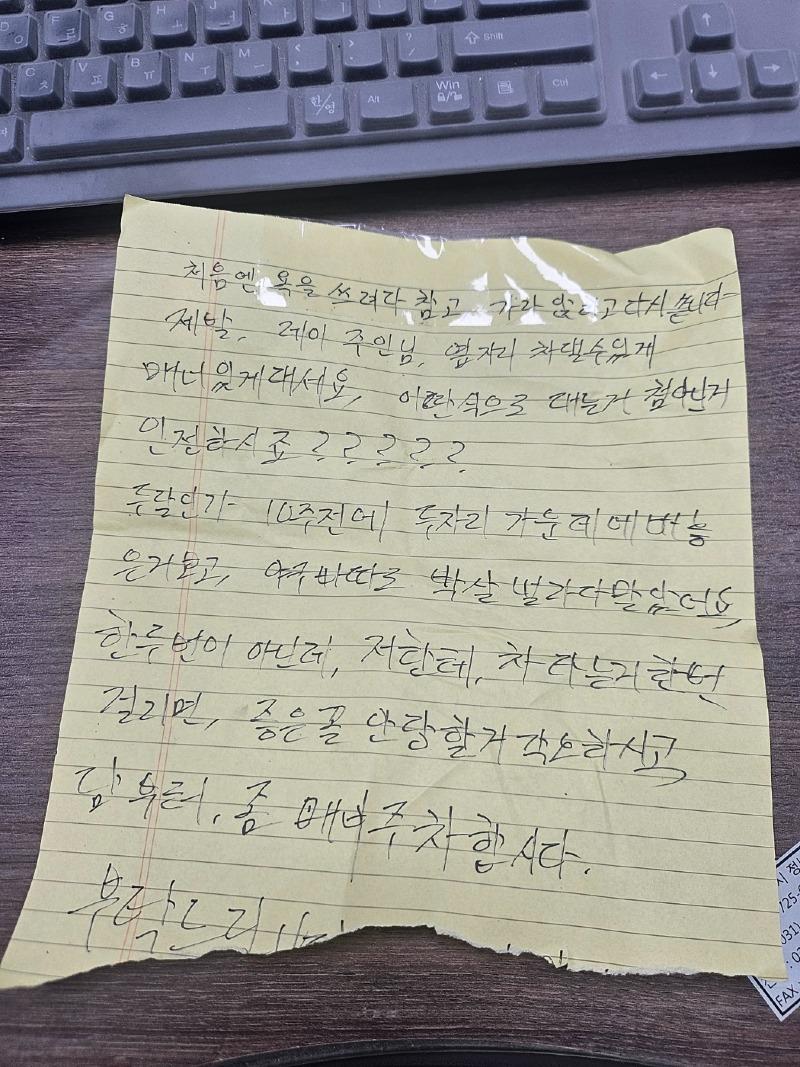 ㄹ ㅎ ㅗ ㅓ ㅏ ㅣ
Shift ↑
ㅊ ㅍ ㅠ ㅜ ㅡ < , > . ? /
한/영 Alt Win Ctrl ← ↓ →
처음엔 욕을 쓰려다 참고 가라앉히고 다시 씁니다
제발, 레이 주인님, 옆자리 차댈수있게
매너있게대세요, 이딴식으로 대는거 첨아닌거
인정하시죠?????
두달인가 10주전에 두자리 가운데에 버놓
은거보고, 야구빠따로 박살 낼라다 말았어요,
한두번이 아닌데, 저한테, 차 타는거 한번
걸리면, 좋은꼴 안당할거 각오하시고,
담부터, 좀 매너주차합시다.
부탁드리
031)
FAX